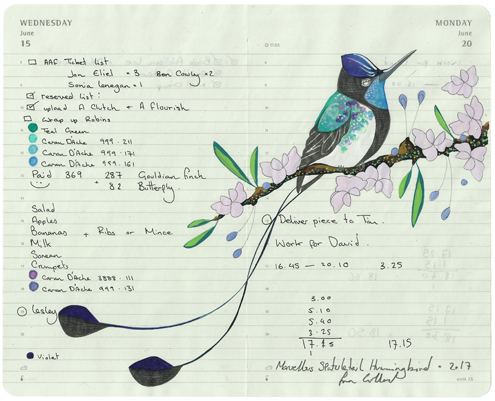 WEDNESDAY
June
15
AAF Ticket list
Jan Eliel × 3 Ben Cowly × 2
Sonia Lenegan × 1
reserved list!
upload A Clutch + A Flourish
Wrap up Robins
Teal Green
Caran D'Ache 999.211
Caran D'Ache 999.171
Caran D'Ache 999.161
Paid 369 287 Gouldian finch
+ 82 Butterfly
Salad
Apples
Bananas + Ribs or Mince
Milk
Crumpets
Caran D'Ache 3888.111
Caran D'Ache 999.131
Lesley
Violet
MONDAY
June
20
Deliver piece to
Work for David.
16.45 — 20.10 3.25
3.00
5.10
5.40
3.25
17.15 17.15
1
Marvellous Spatuletail Hummingbird • 2017